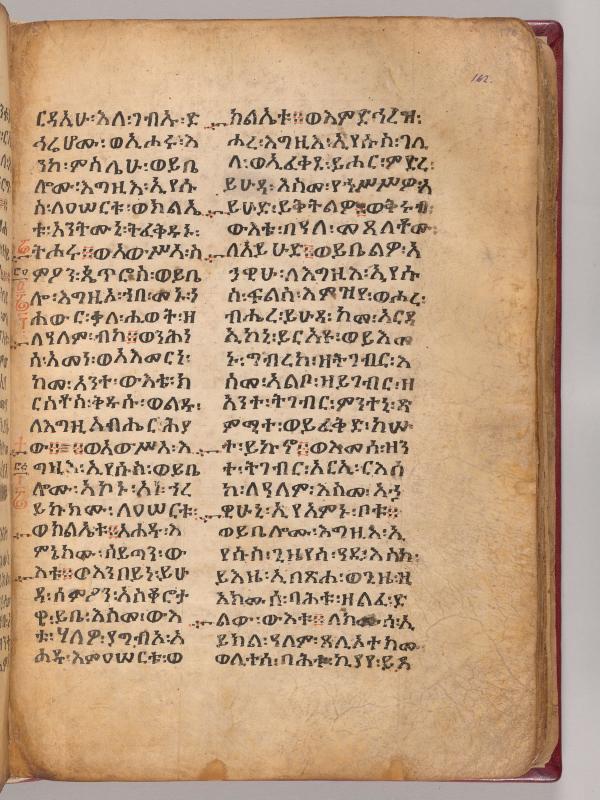 ርዳእሁ፡እለ፡ገብኡ፡ድ
ኅሬሆሙ፡ወኢሐሩ፡እ
ንከ፡ምስሌሁ፡ወይቤ
ሎሙ፡እግዚእ፡ኢየሱ
ስ፡ለዐሠርቱ፡ወክልኤ
ቱ፡አንትሙኒ፡ትፈቅዱኑ፡
ትሐሩ።ወአውሥአ፡ስ
ምዖን፡ጴጥሮስ፡ወይቤ
ሎ፡እግዚእ፡ኀበ፡መኑ፡ን
ሐውር፡ቃለ፡ሐወት፡ዘ
ለዓለም፡ብከ።ወንሕነ
ሰ፡አመነ፡ወአእመርነ፡
ከመ፡አንተ፡ውእቱ፡ክ
ርስቶስ፡ቅዱሱ፡ወልዱ፡
ለእግዚአብሔር፡ሕያ
ው።ወአውሥአ፡እ
ግዚእ፡ኢየሱስ፡ወይቤ
ሎሙ፡አኮኑ፡አነ፡ኀረ
ይኩክሙ፡ለዐሠርቱ፡
ወክልኤቱ።አሐዱ፡እ
ምኔክሙ፡ሰይጣን፡ው
እቱ።ወእንበይነ፡ይሁ
ዳ፡ስምዖን፡አስቆሮታ
ዊ፡ይቤ፡እስመ፡ውእ
ቱ፡ሃለዎ፡ያግብኦ፡አ
ሐዱ፡እምዐሠርቱ፡ወ
ክልኤቱ።ወእምድኅረዝ፡
ሐረ፡እግዚእ፡ኢየሱስ፡ገሊ
ላ፡ወኢፈቀደ፡ይሐር፡ምድረ፡
ይሁዳ፡እስመ፡የኀሥሥዎ፡አ
ይሁድ፡ይቅትልዎ።ወቅሩብ፡
ውእቱ፡በዓለ፡መጸለቶሙ፡
ለአይሁድ።ወይቤልዎ፡አ
ኀዊሁ፡ለእግዚእ፡ኢየሱ
ስ፡ፍልስ፡እምዝየ፡ወሐረ፡
ብሔረ፡ይሁዳ፡ከመ፡አርዳ
ኢከኒ፡ይርአዩ፡ወይእመ
ኑ፡ግብረከ፡ዘትገብር፡እ
ስመ፡አልቦ፡ዘይገብር፡ዘ
አንተ፡ትገብር፡ምንተኒ፡ጽ
ምሚተ፡ወይፈቅድ፡ከሡ
ተ፡ይኩኖ።ወእመሰ፡ዘን
ተ፡ትገብር፡አርኢ፡ርእሰ
ከ፡ለዓለም፡እስመ፡አኀ
ዊሁኒ፡ኢየአምኑ፡ቦቱ።
ወይቤሎሙ፡እግዚእ፡ኢ
የሱስ፡ጊዜየሰ፡ዓዲ፡እስከ፡
ይእዜ፡ኢበጽሐ፡ወጊዜ፡ዚ
አክሙሰ፡በሕቱ፡ዘልፈ፡ድ
ልው፡ውእቱ።ለክሙሰ፡ኢ
ይክል፡ዓለም፡ጸሊኦተክሙ
ወሊተሰ፡ባሕቱ፡ኪያየ፡ይጸ
162.